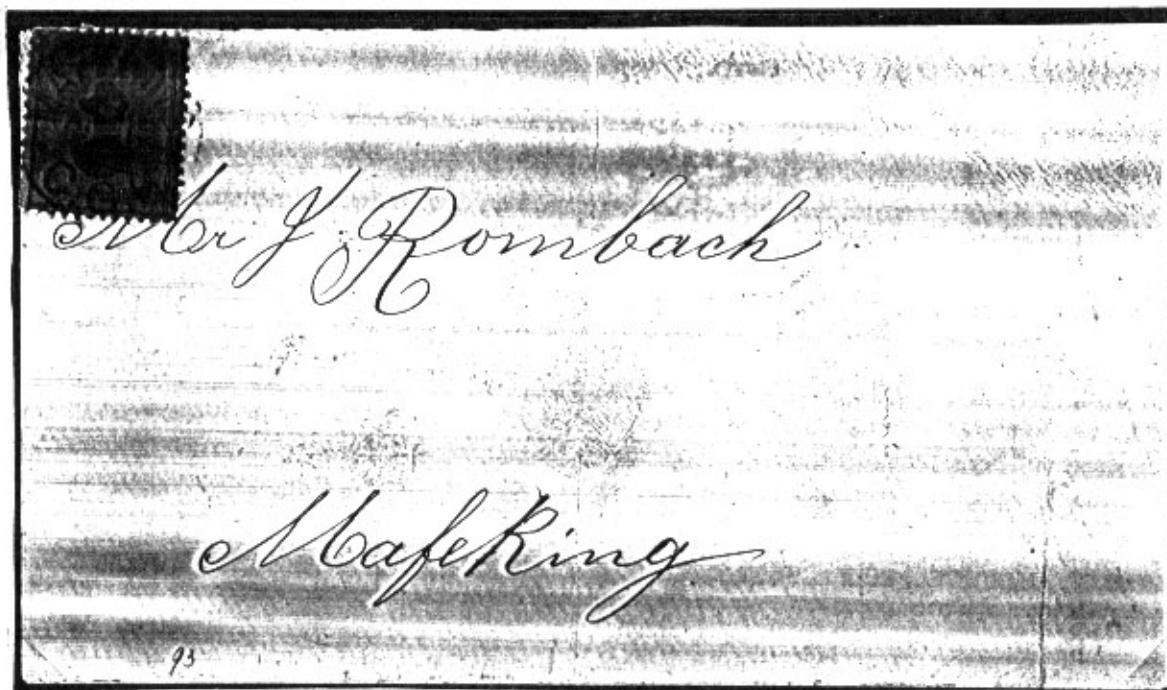 Mr J Rombach
Mafeking
93